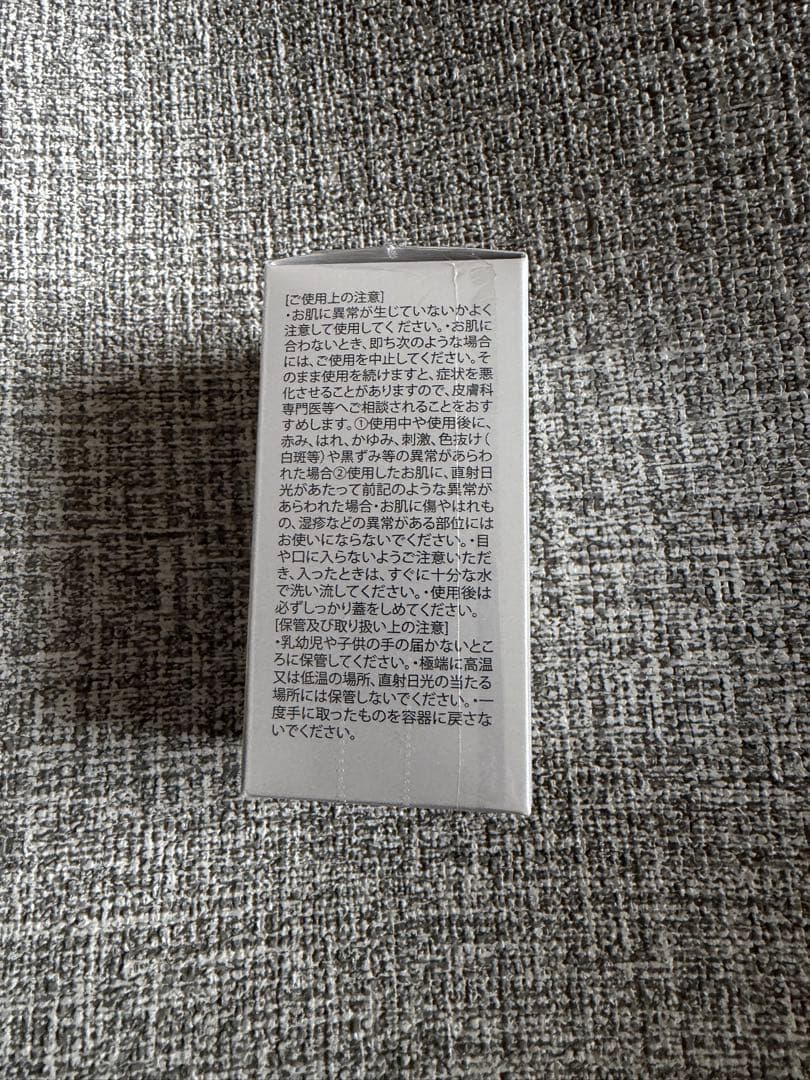 [ご使用上の注意]
・お肌に異常が生じていないかよく
注意して使用してください。・お肌に
合わないとき、即ち次のような場合
には、ご使用を中止してください。そ
のまま使用を続けますと、症状を悪
化させることがありますので、皮膚科
専門医等へご相談されることをおす
すめします。①使用中や使用後に、
赤み、はれ、かゆみ、刺激、色抜け(
白斑等)や黒ずみ等の異常があらわ
れた場合②使用したお肌に、直射日
光があたって前記のような異常が
あらわれた場合・お肌に傷やはれも
の、湿疹などの異常がある部位には
お使いにならないでください。・目
や口に入らないようご注意いただ
き、入ったときは、すぐに十分な水
で洗い流してください。・使用後は
必ずしっかり蓋をしめてください。
[保管及び取り扱い上の注意]
・乳幼児や子供の手の届かないとこ
ろに保管してください。・極端に高温
又は低温の場所、直射日光の当たる
場所には保管しないでください。・一
度手に取ったものを容器に戻さな
いでください。